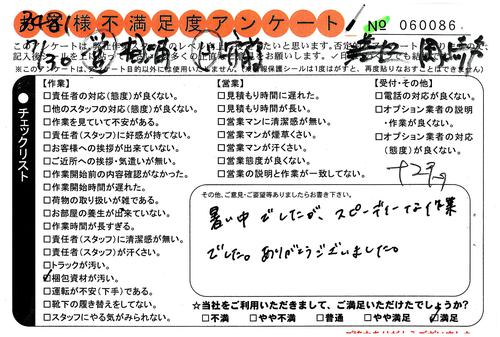 お客様不満足度アンケート
No 060086
7/30
このアンケートは、
チェックリスト
【作業】
□責任者の対応(態度)が良くない。
□他のスタッフの対応(態度)が良くない。
□作業を見ていて不安がある。
□責任者(スタッフ)に好感が持てない。
□お客様への挨拶が出来ていない。
□ご近所への挨拶・気遣いが無い。
□作業開始前の内容確認がなかった。
□作業開始時間が遅れた。
□荷物の取り扱いが雑である。
□お部屋の養生が出来ていない。
□作業時間が長すぎる。
□責任者(スタッフ)に清潔感が無い。
□責任者(スタッフ)が汗くさい。
□トラックが汚い。
□梱包資材が汚い。
□運転が不安(下手)である。
□靴下の履き替えをしてない。
□スタッフにやる気がみられない。
【営業】
□見積もり時間に遅れた。
□見積もり時間が長い。
□営業マンに清潔感が無い。
□営業マンが煙草くさい。
□営業マンが汗くさい。
□営業態度が良くない。
□営業の説明と作業が一致してない。
【受付・その他】
□電話の対応が良くない。
□オプション業者の説明
・作業が良くない。
□オプション業者の対応
(態度)が良くない。
その他、ご意見・ご要望等ありましたらお書き下さい。
暑い中でしたが、スピーディーな作業
でした。ありがとうございました。
☆当社をご利用いただきまして、ご満足いただけたでしょうか?
□不満 □やや不満 □普通 □やや満足 □満足